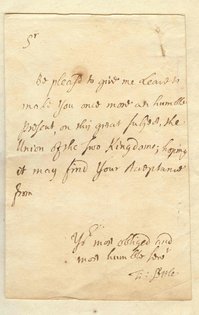 Sr
be pleas'd to give me Leave to
make You once more an humble
Present, on this great subject, the
Union of the two Kingdoms; hoping
it may find Your Acceptance
from
Yr most obliged and
most humble servt